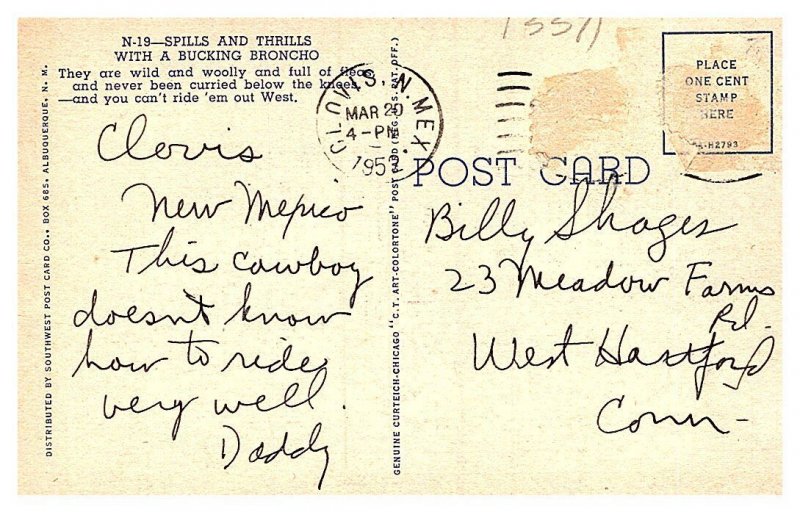 N-19—SPILLS AND THRILLS
WITH A BUCKING BRONCHO
They are wild and woolly and full of fleas
and never been curried below the knees,
—and you can't ride 'em out West.
Clovis
New Mexico
This cowboy
doesn't know
how to ride
very well.
Daddy
DISTRIBUTED BY SOUTHWEST POST CARD CO., BOX 685, ALBUQUERQUE, N. M.
GENUINE CURTEICH-CHICAGO "C.T. ART-COLORTONE" POST CARD (REG. U.S. PAT. OFF.)
CLOVIS, N. MEX.
MAR 20
4-PM
POST CARD
PLACE
ONE CENT
STAMP
HERE
A-H2793
Billy
23 Meadow Farms
Rd.
West Hartford
Conn-